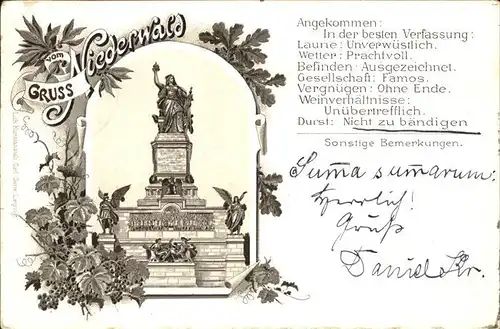 Gruss vom Niederwald
Angekommen:
In der besten Verfassung:
Laune: Unverwüstlich.
Wetter: Prachtvoll.
Befinden: Ausgezeichnet.
Gesellschaft: Famos.
Vergnügen: Ohne Ende.
Weinverhältnisse:
Unübertrefflich.
Durst: Nicht zu bändigen
Sonstige Bemerkungen.
Suma sumarum:
Herrlich!
Gruß
Daniel